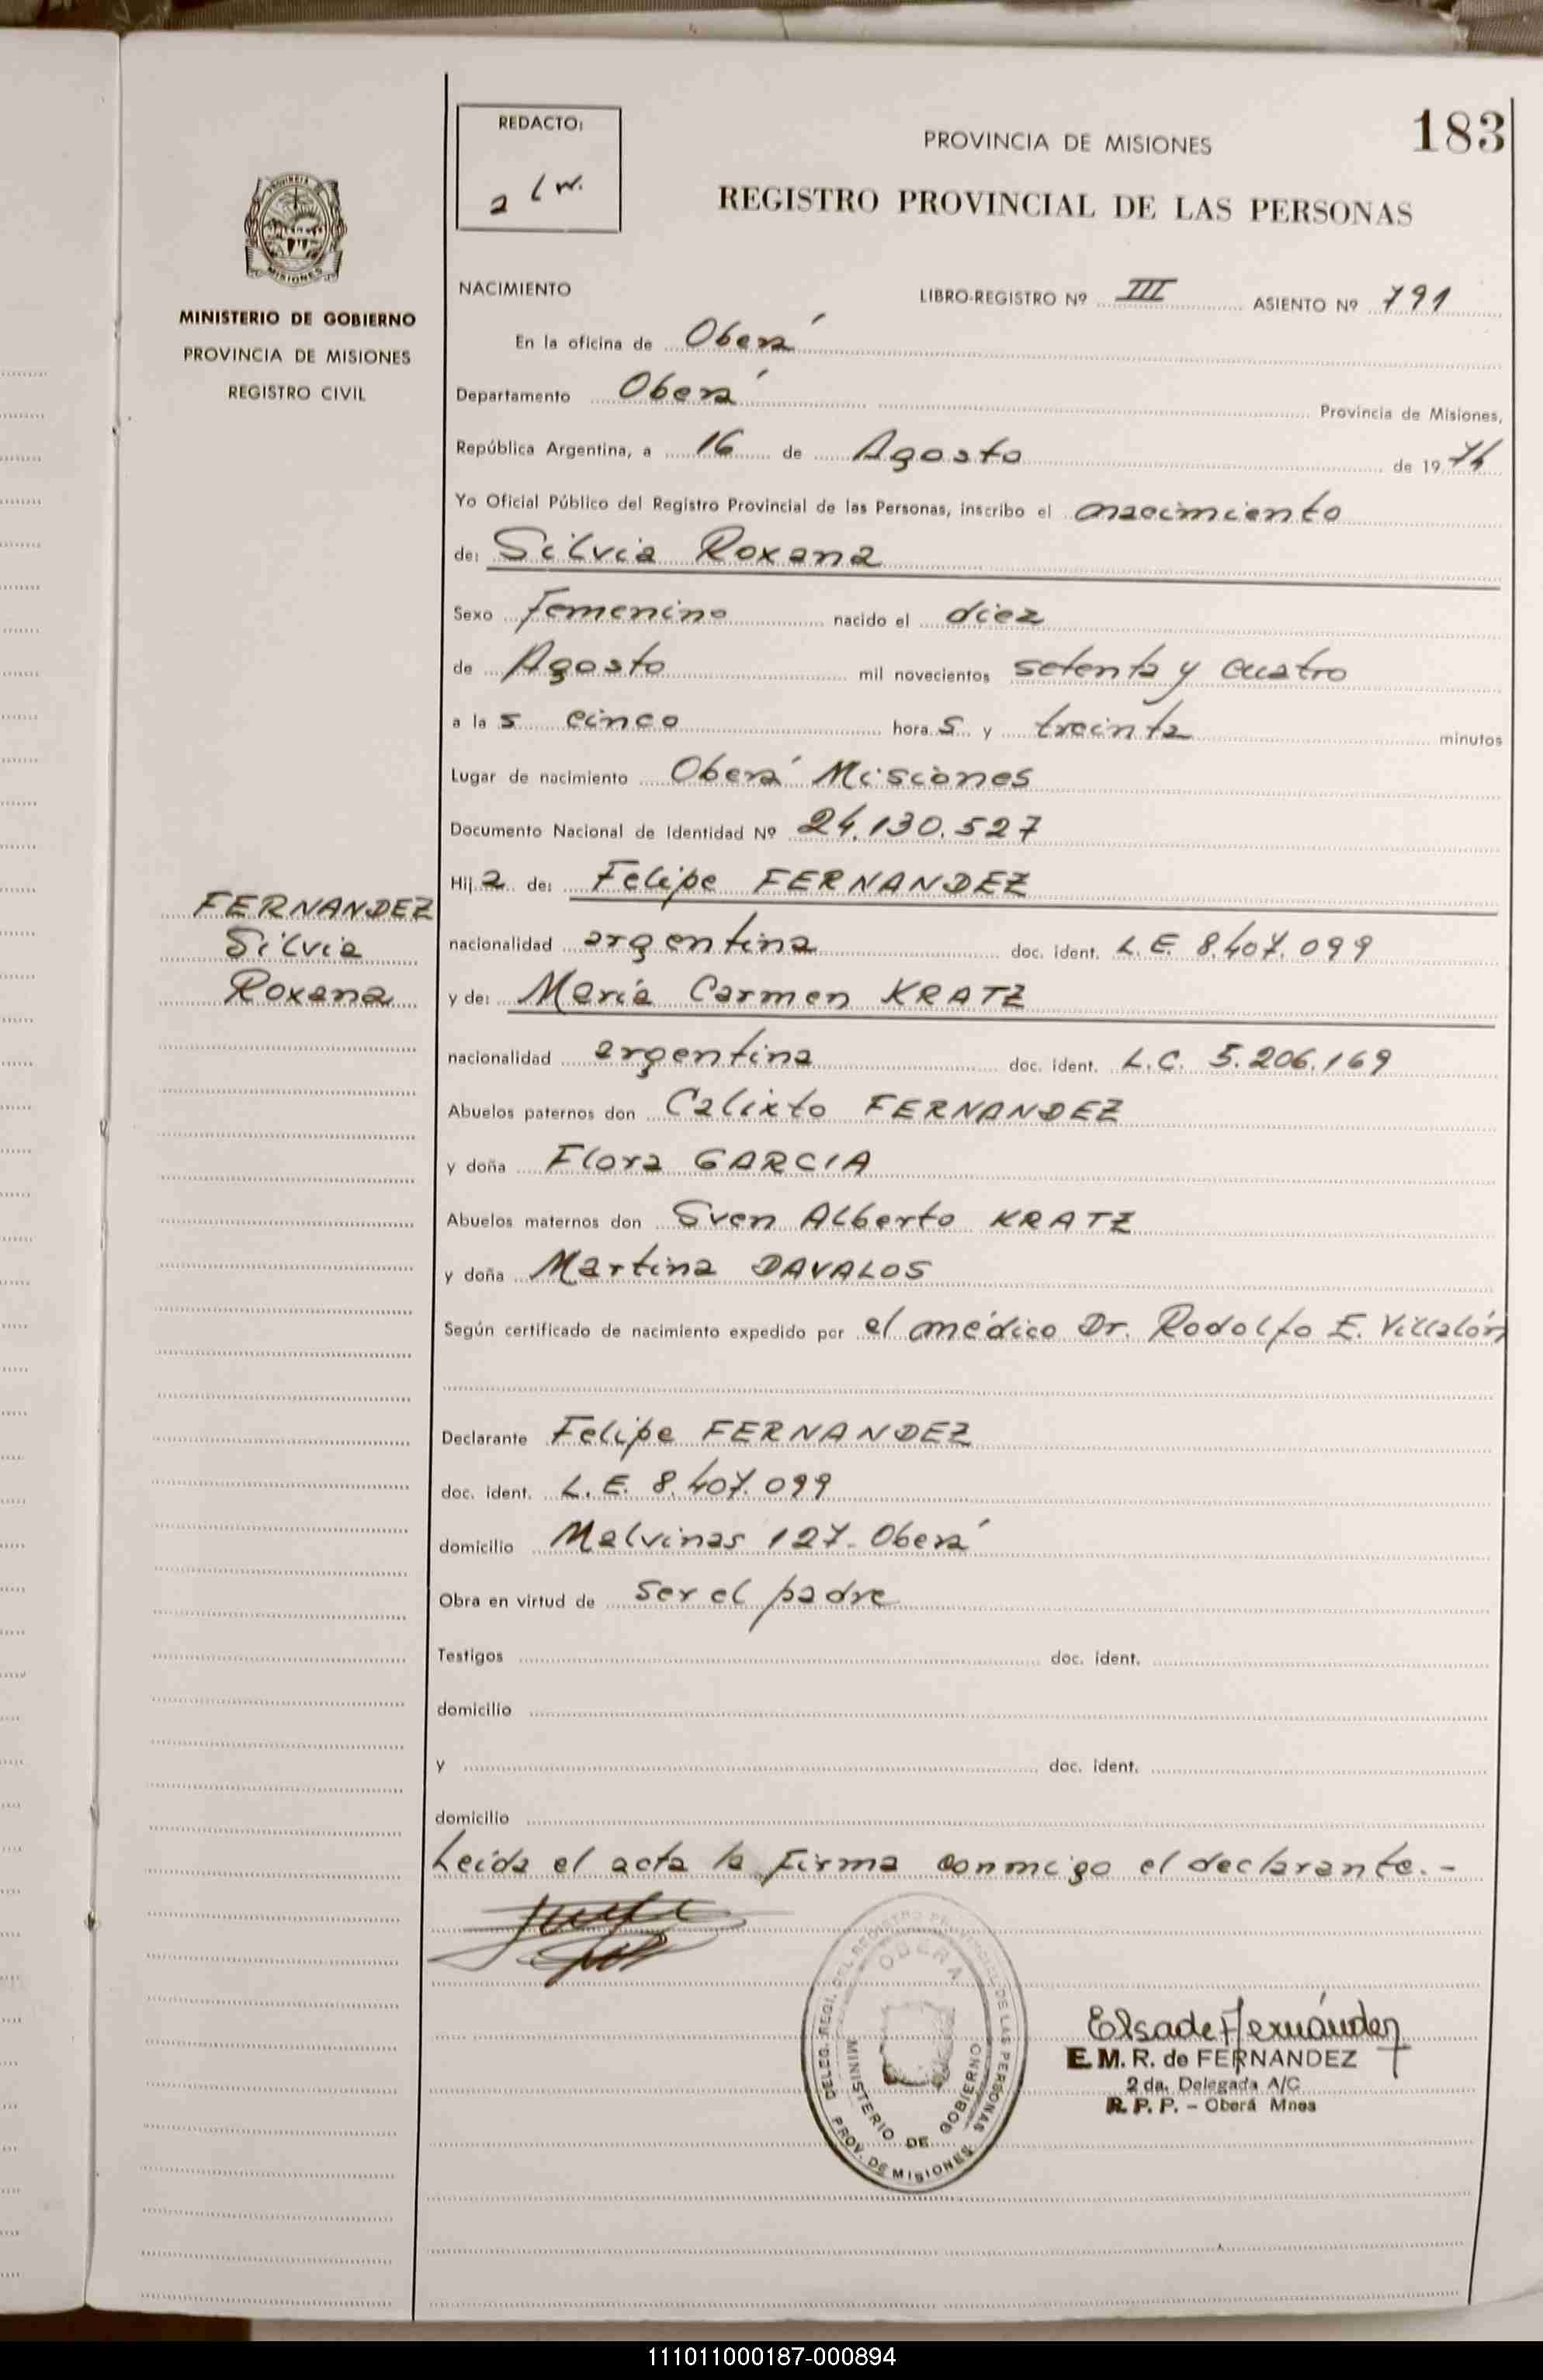 183
REDACTO:
PROVINCIA DE MISIONES
REGISTRO PROVINCIAL DE LAS PERSONAS
MISIONES
MINISTERIO DE GOBIERNO
PROVINCIA DE MISIONES
REGISTRO CIVIL
NACIMIENTO LIBRO-REGISTRO Nº III ASIENTO Nº 791
En la oficina de Oberá
Departamento Oberá Provincia de Misiones,
República Argentina, a 16 de Agosto de 1974
Yo Oficial Público del Registro Provincial de las Personas, inscribo el nacimiento
de: Silvia Roxana
Sexo Femenino nacido el diez
de Agosto mil novecientos setenta y cuatro
a la s cinco hora s y treinta minutos
Lugar de nacimiento Oberá Misiones
Documento Nacional de Identidad Nº 24.130.527
Hij a de: Felipe FERNANDEZ
FERNANDEZ
Silvia
Roxana
nacionalidad argentina doc. ident. L.E. 8.407.099
y de: María Carmen KRATZ
nacionalidad argentina doc. ident. L.C. 5.206.169
Abuelos paternos don Calixto FERNANDEZ
y doña Flora GARCIA
Abuelos maternos don Sven Alberto KRATZ
y doña Martina DAVALOS
Según certificado de nacimiento expedido por el médico Dr. Rodolfo E. Villalón
Declarante Felipe FERNANDEZ
doc. ident. L.E. 8.407.099
domicilio Malvinas 127- Oberá
Obra en virtud de ser el padre
Testigos doc. ident.
domicilio
y doc. ident.
domicilio
Leída el acta la firma conmigo el declarante.-
DELEG. REGI. DEL REGISTRO PROVINCIAL DE LAS PERSONAS
OBERA
MINISTERIO DE GOBIERNO
PROV. DE MISIONES
Elsa de Fernández
E. M. R. de FERNANDEZ
2 da. Delegada A/C
R. P. P. - Oberá Mnes
111011000187-000894